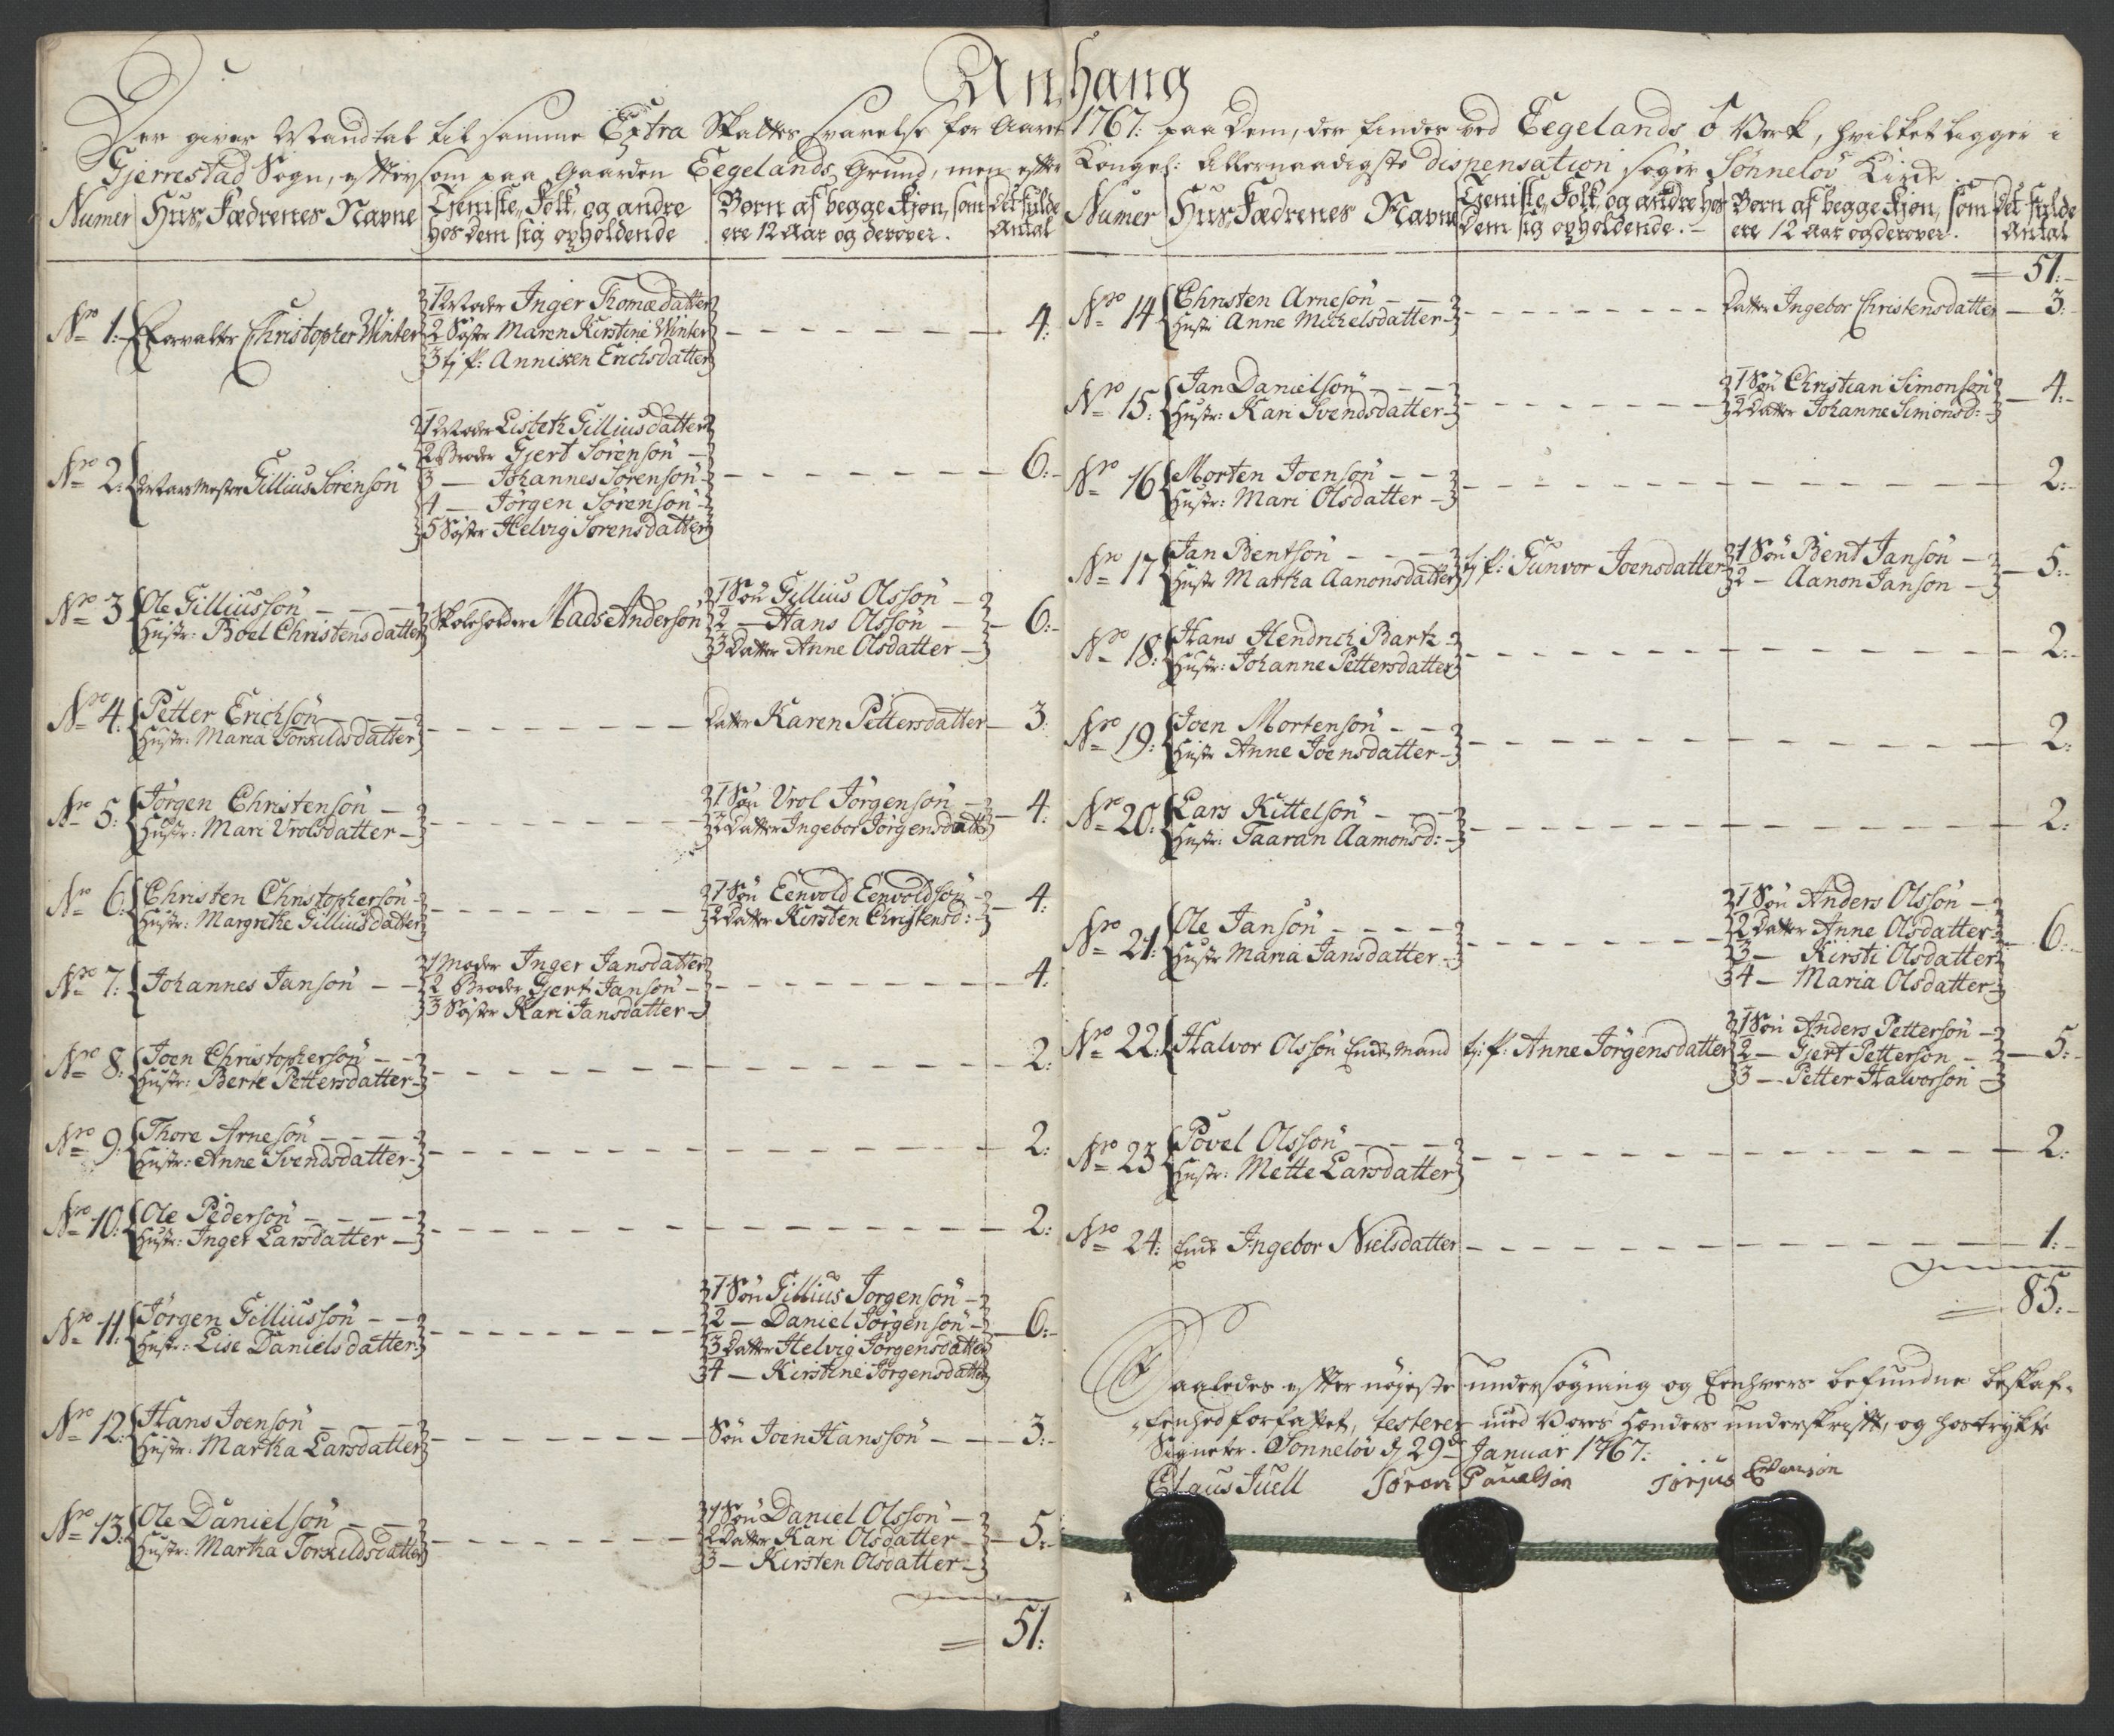 Anhang
Der giver Mandtal til samme Extra Skattes Svarelse for Aaret 1767: paa dem, der findes ved Eegelands Verk, hvilket ligger i
Gjerrestad Sogn, eftersom paa Gaarden Eegelands Grund, men efter Kongel: Allernaadigste dispensation søger Sønneløv Kirke.
Numer Hus-Fædrenes Navne
Tjeniste-Folk, og andre
hos dem sig opholdende
Børn af begge Kjøn, som
ere 12 Aar og derover.
det fulde
Antal
No 1: Forvalter Christopher Winter
1 Moder Inger Thomædatter
2 Søster Maren Kirstine Winter
3 tj: p: Anniken Erichsdatter
4:
No 2: Gillius Sörensön
1 Moder Lisbeth Gilliusdatter
2 Broder Gjert Sörensön
3 — Johannes Sörensön
4 — Jörgen Sörensön
5 Søster Helvig Sörensdatter
6:
No 3 Ole Gilliussön
Hustr: Boel Christensdatter
Skoleholder Mads Andersön
1 Søn Gillius Olssön
2 — Hans Olssön
3 Datter Anne Olsdatter
6:
No 4. Petter Erichsön
Hustr: Maria Torkildsdatter
Datter Karen Pettersdatter
3:
No 5: Jörgen Christensön
Hustr: Mari Vrolsdatter
1 Søn Vrol Jörgensön
2 Datter Ingebor Jörgensdatter
4:
No 6: Christen Christophersön
Hustr: Margrethe Gilliusdatter
1 Søn Eenvold Eenvoldsön
2 Datter Kirsten Christensd:
4:
No 7: Johannes Jansön
1 Moder Inger Jansdatter
2 Broder Gjert Jansön
3 Søster Kari Jansdatter
4:
No 8: Joen Christophersön
Hustr: Berte Pettersdatter
2:
No 9: Thore Arnesön
Hustr: Anne Svendsdatter
2:
No 10: Ole Pedersön
Hustr: Inger Larsdatter
2:
No 11: Jörgen Gilliussön
Hustr: Lise Danielsdatter
1 Søn Gillius Jörgensön
2 — Daniel Jörgensön
3 Datter Helvig Jörgensdatter
4 — Kirstine Jörgensdatter
6:
No 12: Hans Joensön
Hustr: Martha Larsdatter
Søn Joen Hanssön
3:
No 13: Ole Danielsön
Hustr: Martha Torkildsdatter
1 Søn Daniel Olssön
2 Datter Kari Olsdatter
3 — Kirsten Olsdatter
5:
51:
Numer Hus-Fædrenes Navne
Tjeniste-Folk, og andre hos
dem sig opholdende.
Børn af begge Kjøn, som
ere 12 Aar og derover.
det fulde
Antal
51:
No 14 Christen Arnesön
Hustr Anne Michelsdatter
Datter Ingebor Christensdatter
3:
No 15: Jan Danielsön
Hustr: Kari Svendsdatter
1 Søn Christian Simonsön
2 Datter Johanne Simonsd:
4:
No 16 Morten Joensön
Hustr: Mari Olsdatter
2:
No 17 Jan Bentsön
Hustr Martha Aanonsdatter
tj: p: Gunvor Joensdatter
1 Søn Bent Jansön
2 — Aanon Jansön
5:
No 18: Hans Hendrich Bartz
Hustr: Johanne Pettersdatter
2:
No 19: Joen Mortensön
Hustr Anne Joensdatter
2:
No 20: Lars Kittelsön
Hustr: Taaran Aamonsd:
2:
No 21: Ole Jansön
Hustr Maria Jansdatter
1 Søn Anders Olssön
2 Datter Anne Olsdatter
3 — Kirsti Olsdatter
4 — Maria Olsdatter
6:
No 22: Halvor Olssön Enkemand
tj: p: Anne Jörgensdatter
1 Søn Anders Pettersön
2 — Gjert Pettersön
3 — Petter Halvorsön
5:
No 23 Povel Olssön
Hustr: Mette Larsdatter
2:
No 24: Enke Ingebor Nielsdatter
1:
85:
Saaledes efter nøjeste undersøgning og Eenhvers befundne beskaf-
fenhed forfattet, testerer med Vores Hænders underskrift, og hostrykte
Signeter. Sønneløv d 29de Januar 1767:
Claus Juell Sören Pauelsön Törjus Evensön